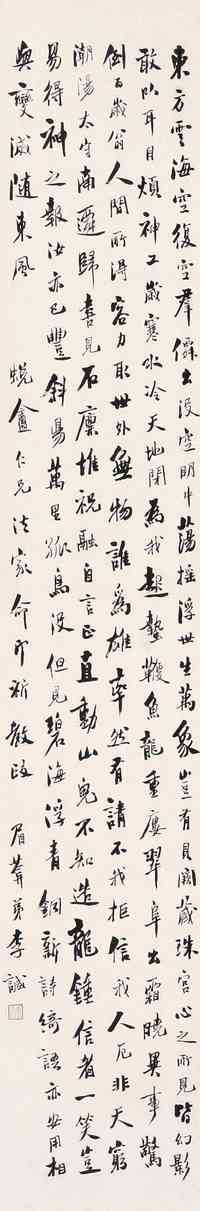 東方雲海空復空群僊出沒空明中蕩搖浮世生萬象豈有貝闕藏珠宮心之所見皆幻影
敢以耳目煩神工歲寒水冷天地閉為我起蟄鞭魚龍重廔翠阜出霜曉異事驚
倒百歲翁人間所得容力取世外無物誰為雄率然有請不我拒信我人厄非天窮
潮陽太守南遷歸喜見石廩堆祝融自言正直動山鬼不知造龍鍾信者一笑豈
易得神之報汝亦已豐斜陽萬里孤鳥沒但見碧海浮青銅新詩綺語亦安用相
與變滅隨東風 蛻盦仁兄法家命即祈教政 眉葊弟李誠